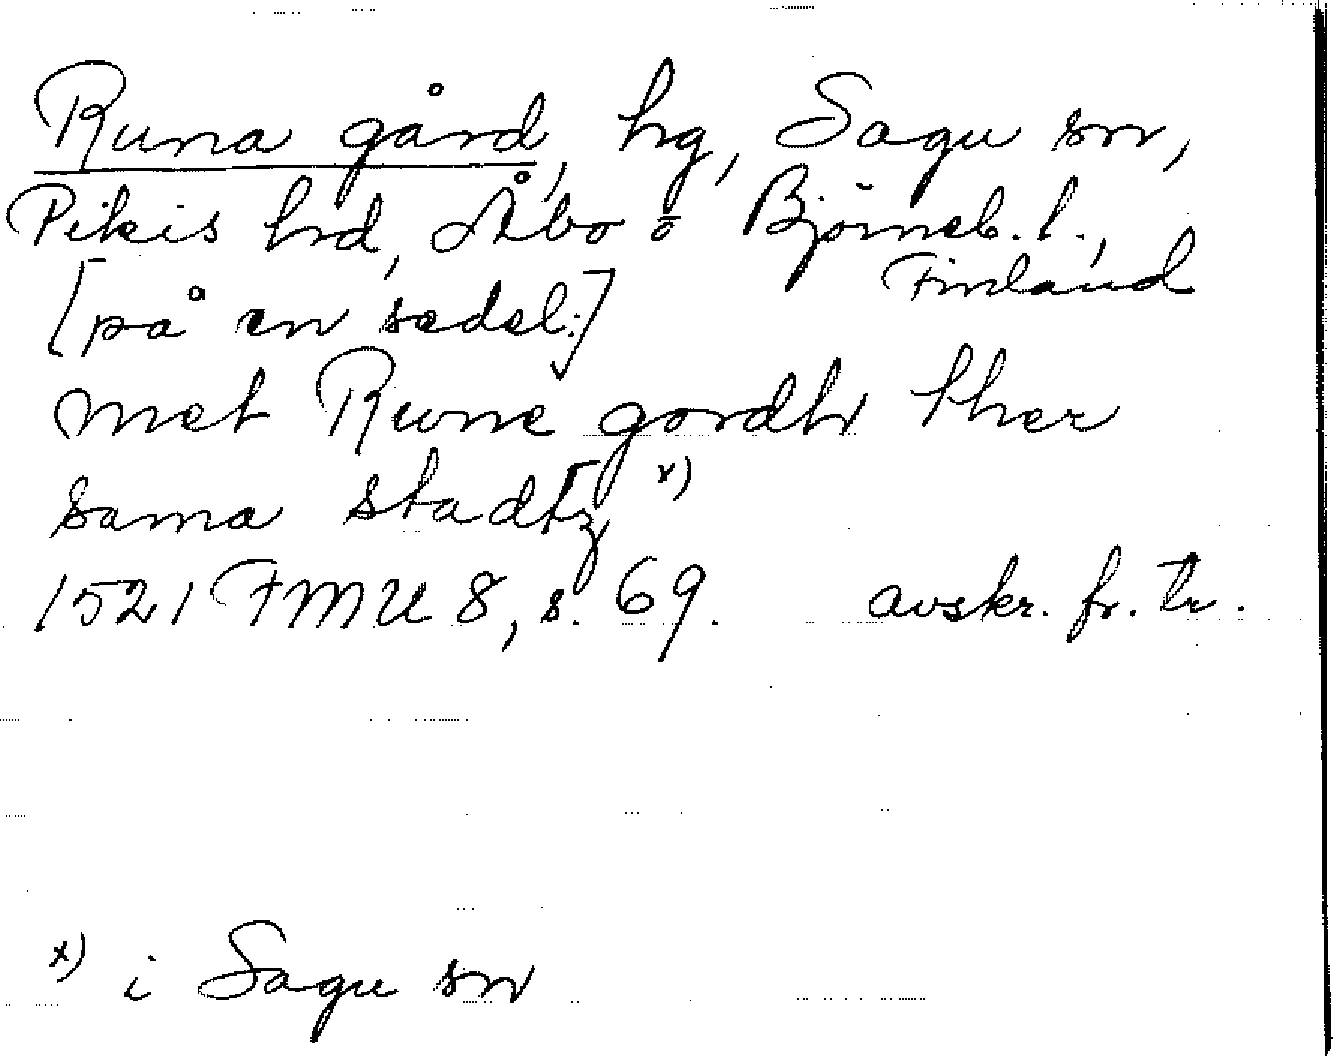 Runa gård, hg, Sagu sn,
Pikis hd, Åbo o Björneb. l.,
Finland
[på en sedel:]
met Rwne gordh ther
sama stadtz x)
1521 FMU 8, s. 69. avskr. fr. tr.
x) i Sagu sn